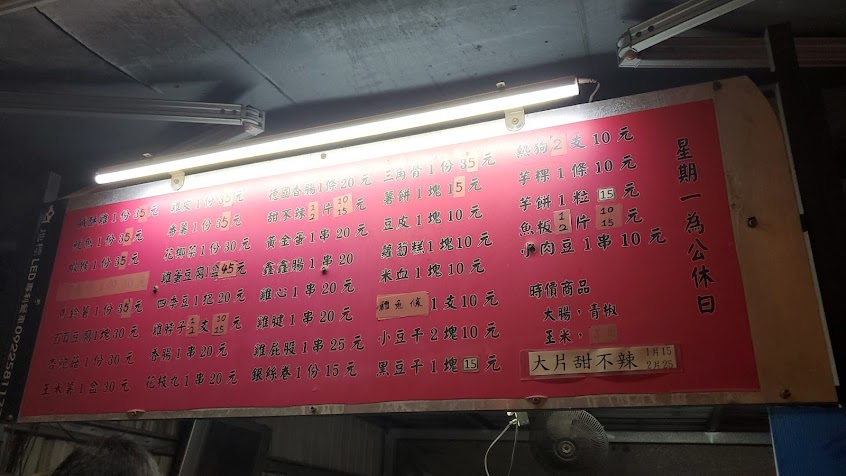 鹹酥雞1份35元
魷魚1份35元
1份35元
1份35元
百頁豆腐1塊30元
杏鮑菇1份30元
玉米筍1盒30元
雞皮1份35元
番薯1份35元
花椰菜1份30元
雞蛋豆腐1盒45元
四季豆1把20元
雞脖子1/2支10/15元
香腸1串20元
花枝丸1串20元
德國香腸1條20元
甜不辣1/2片10/15元
黃金蛋1串20元
鑫鑫腸1串20
雞心1串20元
雞腱1串20元
雞屁股1串25元
銀絲卷1份15元
三角骨1份35元
薯餅1塊15元
豆皮1塊10元
蘿蔔糕1塊10元
米血1塊10元
1支10元
小豆干2塊10元
黑豆干1塊15元
熱狗2支10元
芋粿1條10元
芋餅1粒15元
魚板1/2片10/15元
小肉豆1串10元
時價商品
大腸，青椒
玉米，
大片甜不辣 1片15 2片25
星期一為公休日
LED專利製